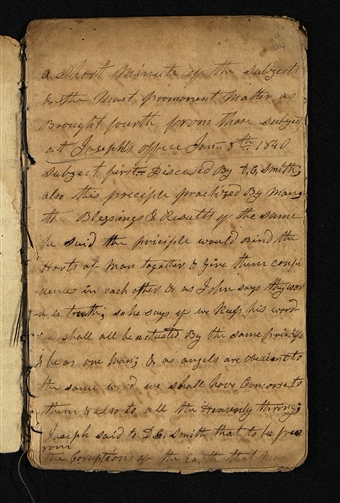 a Short Minute of the subjects
& the Most Promonent Matter as
Brought fourth from those subjects
at Joseph's office Jan. 8th 1840
subject first = Discused By D. C. Smith
also this preciple practized By many
the Blessings & Results of the same
he said the priciple would bind the
Harts of man together & give them confi
dence in each other & as John says thy word
is truth; so he says if we Keep his word
shall all be actuated By the same priciple
& be as one man; & as angels are obedient to
the same word we shall have Concorse to
them & also to all the Heavenly throng;
Joseph said to D.C. Smith that to be free
from
the Coruptions of the Earth that